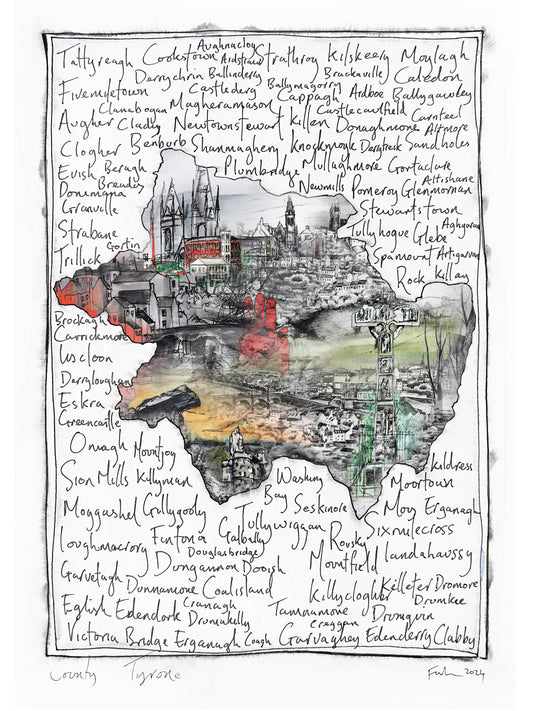 Aughnacloy
Tattyreagh Cookstown Ardstraw Strathroy Kilskeery Moylagh
Derrychrin Ballinderry Brackaville Caledon
Fivemiletown Castlederg Ballymagorry Cappagh Ardboe Ballygawley
Clanabogan Magheramason Castlecaulfield Carnteel
Augher Clady Newtownstewart Killen Donaghmore Altmore
Clogher Benburb Shanmaghery Knockmoyle Sandholes
Evish Beragh Plumbridge Mullaghmore Gortaclare
Donemana Bready Newmills Pomeroy Glenmornan Altishane
Granville Stewartstown
Strabane Tullyhogue Glebe Aghyaran
Trillick Gortin Spamount Artigarvan
Rock Killay
Brockagh
Carrickmore
Liscloon
Derryloughan
Eskra
Greencastle
Omagh Mountjoy
Sion Mills Killyman Washing Bay Seskinore Moortown Kildress
Moygashel Gillygooly Tullywiggan Moy Erganagh
Loughmacrory Fintona Galbally Rousky Sixmilecross
Douglasbridge
Garvetagh Dungannon Dooish Mountfield Landahaussy
Dunnamore Coalisland Killyclogher Killeter Dromore
Eglish Edendork Cranagh Tamnamore Drumkee
Drumakelly Craggan Drumquin
Victoria Bridge Erganagh Coagh Garvaghey Edenderry Clabby
County Tyrone 2024